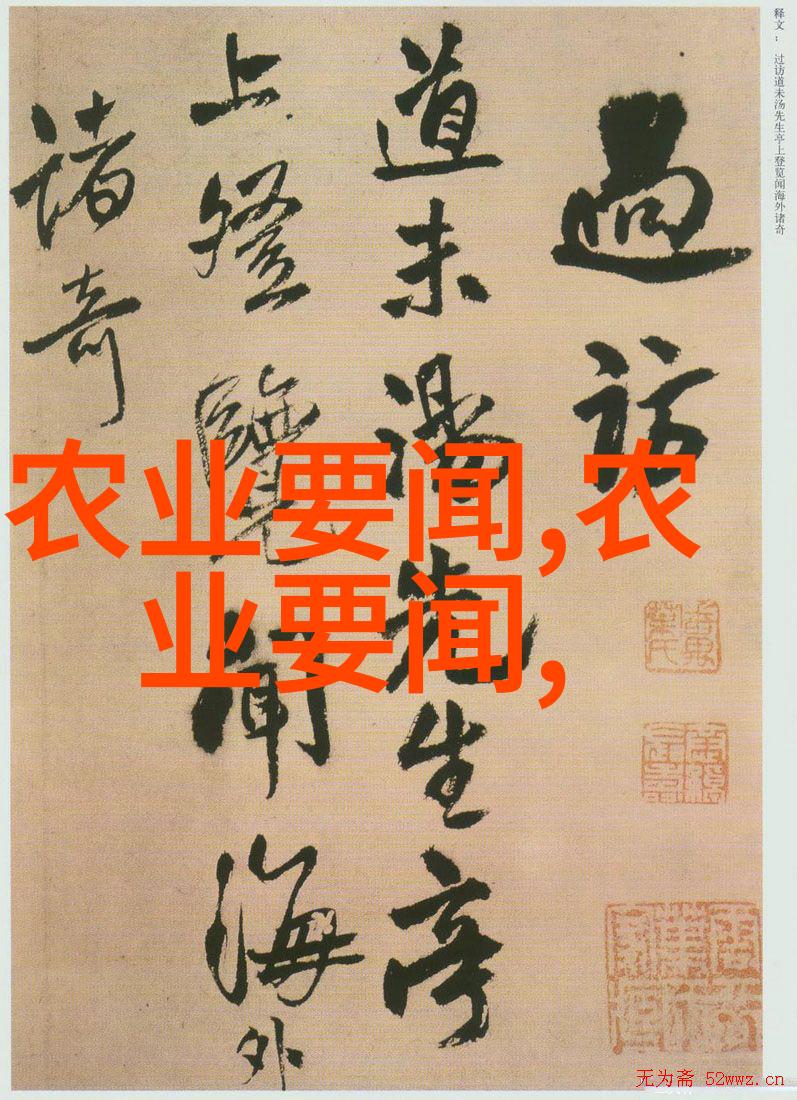 释文： 过访道未汤先生亭上登览闻海外诸奇
過訪
道未湯先生亭
上登覽聞海外
諸奇
农业要闻,农
业要闻,
无为斋 52wwz.cn